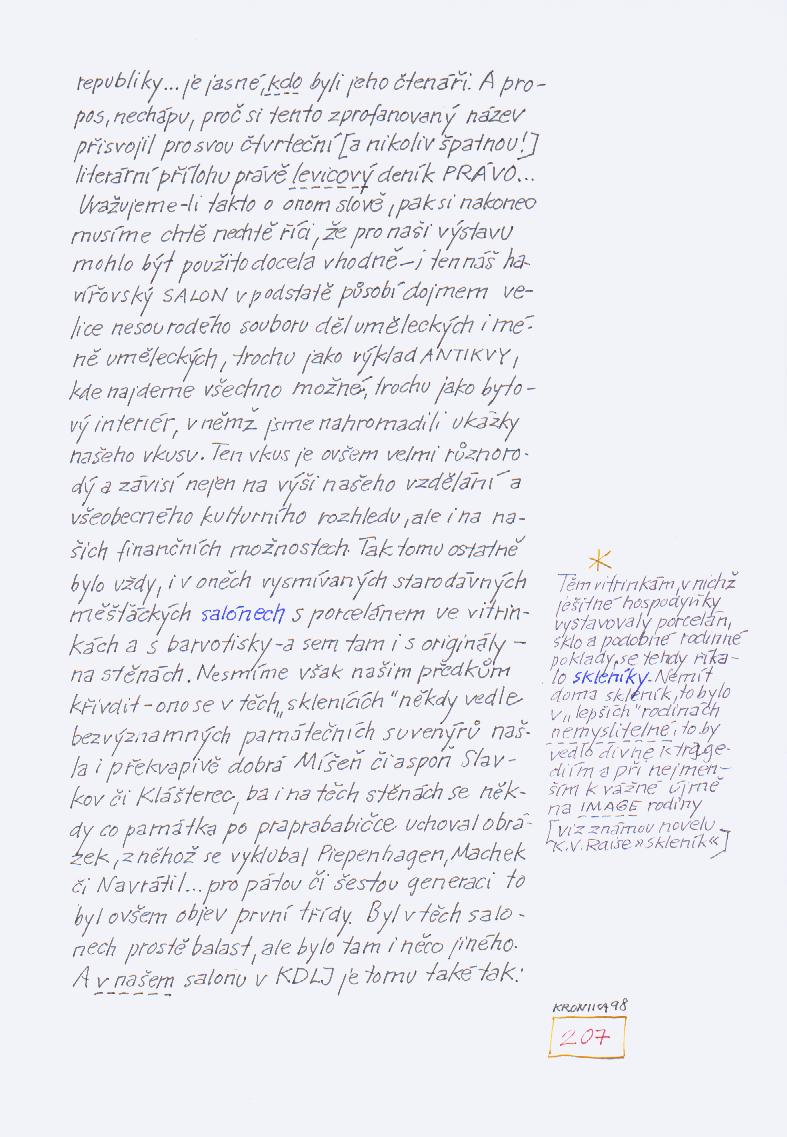 republiky... je jasné, kdo byli jeho čtenáři. A pro-
pos, nechápu, proč si tento zprofanovaný název
přisvojil pro svou čtvrteční [a nikoliv špatnou!]
literární přílohu právě levicový deník PRÁVO...
Uvažujeme-li takto o onom slově, pak si nakonec
musíme chtě nechtě říci, že pro naši výstavu
mohlo být použito docela vhodně – i ten náš ha-
vířovský SALON v podstatě působí dojmem ve-
lice nesourodého souboru děl uměleckých i mé-
ně uměleckých, trochu jako výklad ANTIKVY,
kde najdeme všechno možné, trochu jako byto-
vý interiér, v němž jsme nahromadili ukázky
našeho vkusu. Ten vkus je ovšem velmi různoro-
dý a závisí nejen na výši našeho vzdělání a
všeobecného kulturního rozhledu, ale i na na-
šich finančních možnostech. Tak tomu ostatně
bylo vždy, i v oněch vysmívaných starodávných
měšťáckých salónech s porcelánem ve vitrín-
kách a s barvotisky - a sem tam i s originály –
na stěnách. Nesmíme však našim předkům
křivdit - ono se v těch „sklenících" někdy vedle
bezvýznamných památečních suvenýrů naš-
la i překvapivě dobrá Míšeň či aspoň Slav-
kov či Klášterec, ba i na těch stěnách se něk-
dy co památka po praprababičce uchoval obrá-
zek, z něhož se vyklubal Piepenhagen, Machek
či Navrátil... pro pátou či šestou generaci to
byl ovšem objev první třídy. Byl v těch salo-
nech prostě balast, ale bylo tam i něco jiného.
A v našem salonu v KDLJ je tomu také tak:
*
Těm vitrinkám, v nichž
ješitné hospodyňky
vystavovaly porcelán,
sklo a podobné rodinné
poklady, se tehdy říka-
lo skleníky. Nemít
doma skleník, to bylo
v „lepších" rodinách
nemyslitelné, to by
vedlo divně k tragé-
diím a při nejmen-
ším k vážné újmě
na IMAGE rodiny
[viz známou novelu
K.V. Raise »skleník«]
KRONIKA 98
207